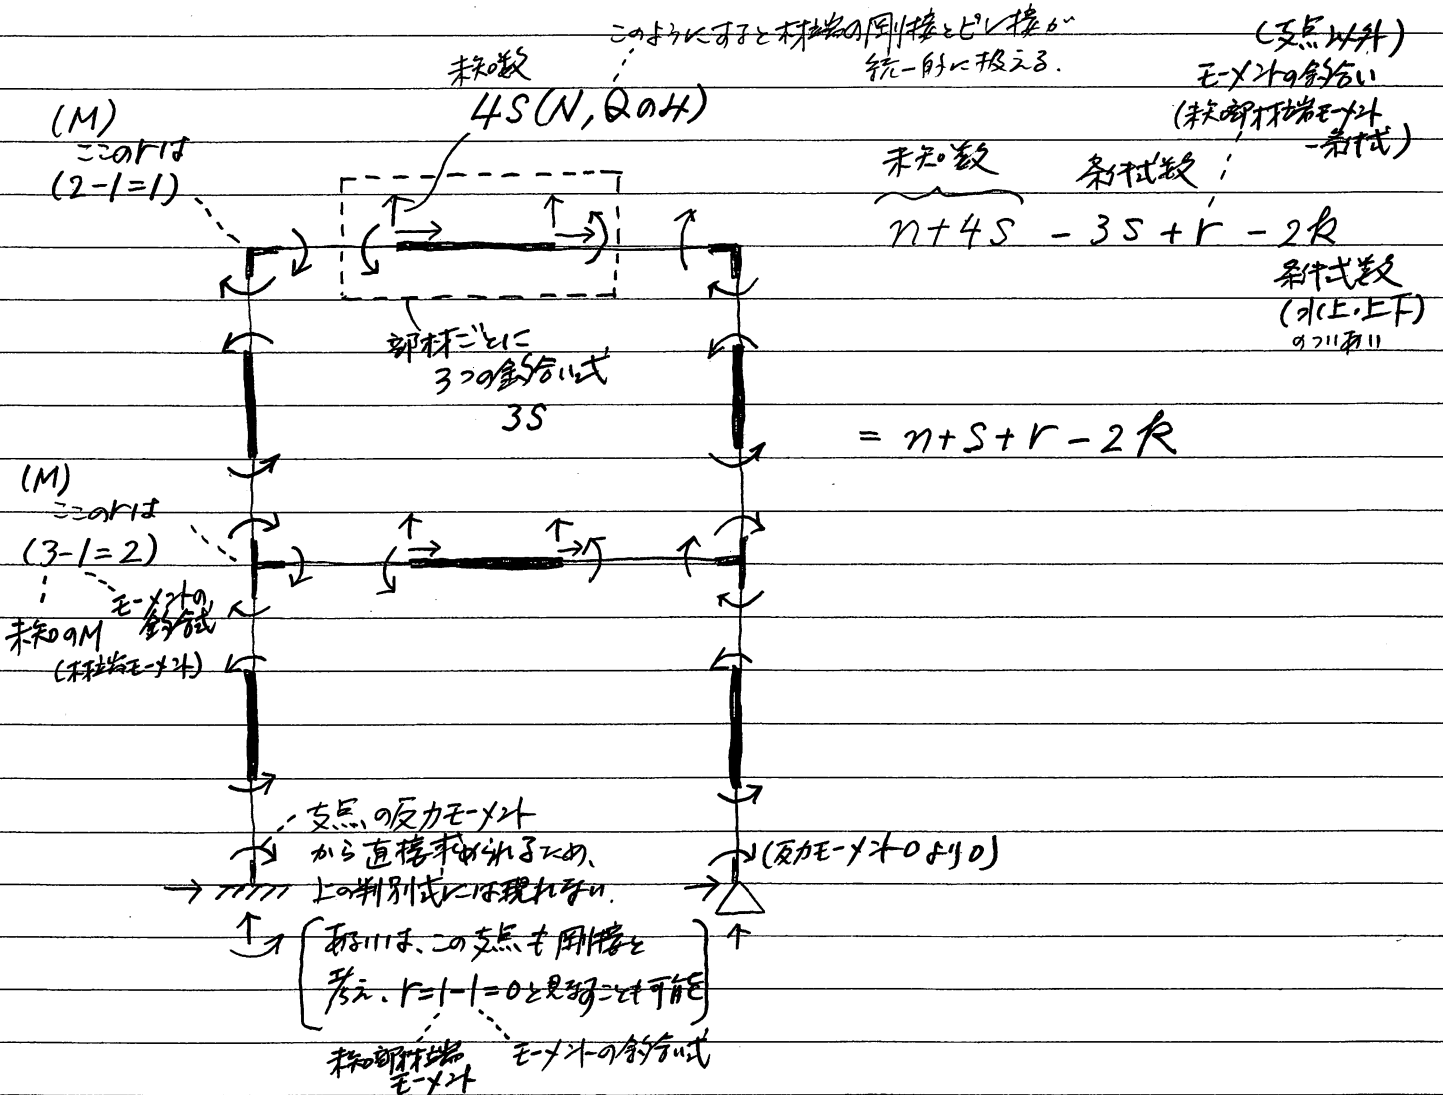 このようにすると材端の剛接とピン接が
統一的に扱える.
未知数
4S(N,Qのみ)
(M)
ここのrは
(2-1=1)
(支点以外)
モーメントの釣合い
(未知部材材端モーメント
-条件式)
未知数
条件式数
n+4s - 3s+r - 2k
条件式数
(水平・上下)
のつりあい
部材ごとに
3つの釣合い式
3S
= n+s+r-2k
(M)
ここのrは
(3-1=2)
モーメントの
釣合式
未知のM
(材端モーメント)
支点の反力モーメント
から直接求められるため、
上の判別式には現れない.
(反力モーメント0より0)
あるいは、この支点も剛接と
考え、r=1-1=0と見なすことも可能
未知部材材端
モーメント
モーメントの釣合い式